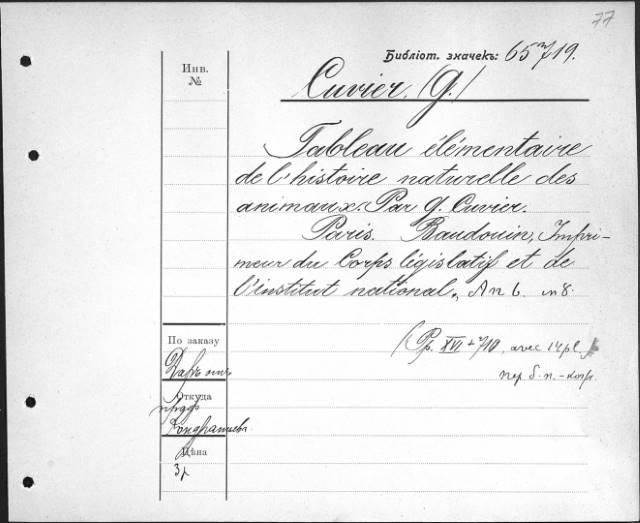 77
Библіот. значекъ: 65719.
Инв.
№
Cuvier. (G.)
Tableau élémentaire
de l'histoire naturelle des
animaux. Par G. Cuvier.
Paris. Baudouin, Impri-
meur du Corps législatif et de
l'institut national., An 6. in 8.
По заказу
(Pp. XVI + 710, avec 14 pl.)
Даръ
пер б.-п.-кожр.
Откуда
проф
Кондратьева
Цѣна
3 р